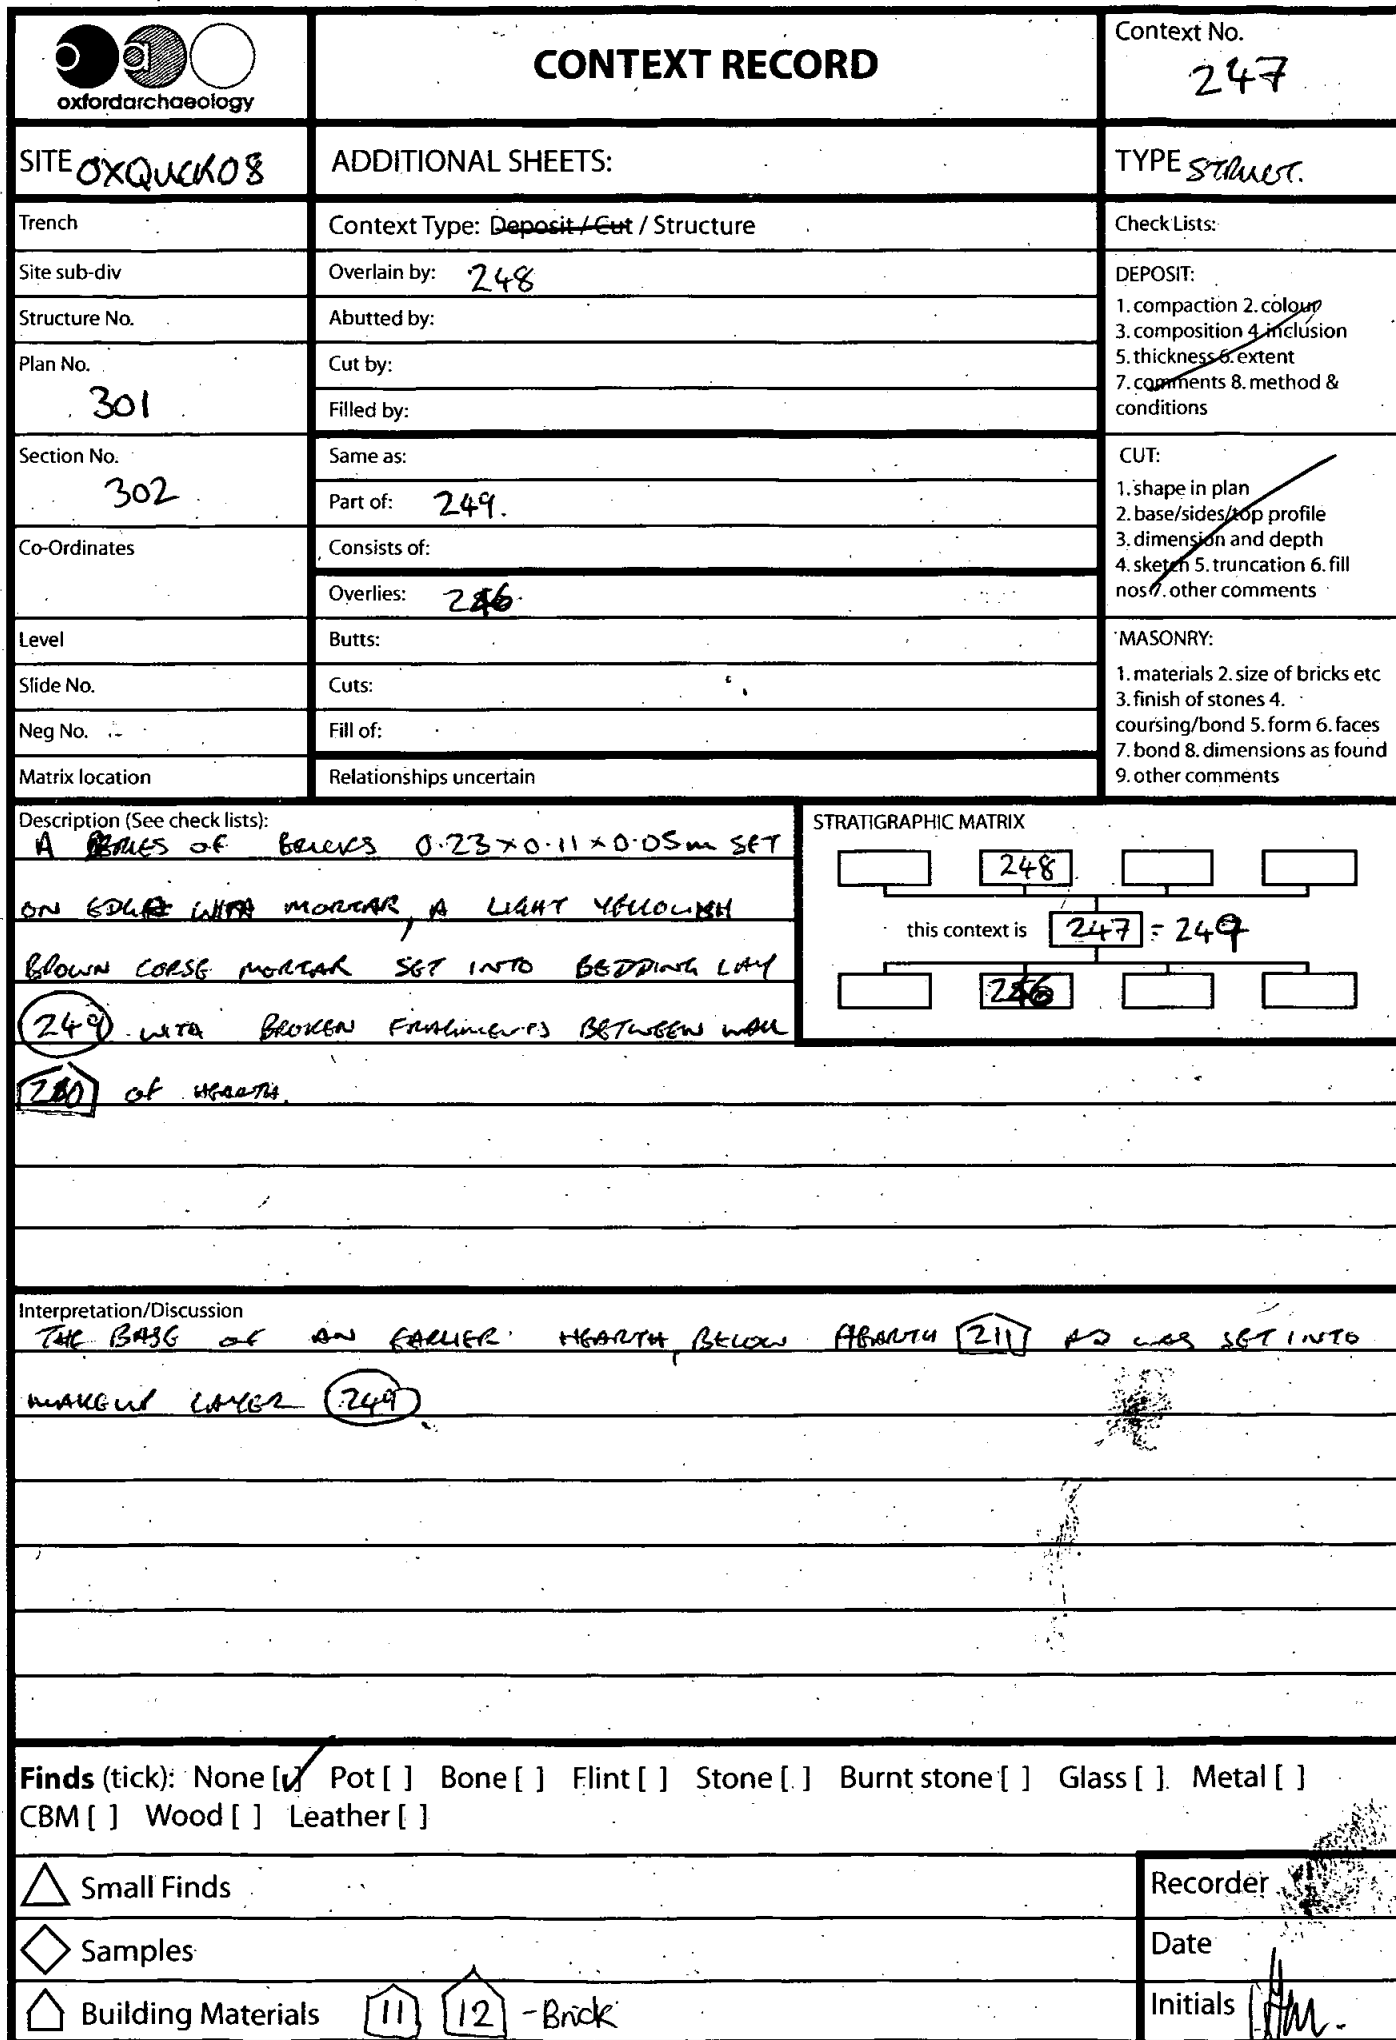 oxfordarchaeology
CONTEXT RECORD
Context No.
247
SITE OXQUCK08
ADDITIONAL SHEETS:
TYPE STRUCT.
Trench
Context Type: Deposit / Cut / Structure
Check Lists:
Site sub-div
Overlain by: 248
Structure No.
Abutted by:
Plan No.
301
Cut by:
Filled by:
Section No.
302
Same as:
Part of: 249.
Co-Ordinates
Consists of:
Overlies: 246
Level
Butts:
Slide No.
Cuts:
Neg No.
Fill of:
Matrix location
Relationships uncertain
DEPOSIT:
1. compaction 2. colour
3. composition 4. inclusion
5. thickness 6. extent
7. comments 8. method &
conditions
CUT:
1. shape in plan
2. base/sides/top profile
3. dimension and depth
4. sketch 5. truncation 6. fill
nos 7. other comments
MASONRY:
1. materials 2. size of bricks etc
3. finish of stones 4.
coursing/bond 5. form 6. faces
7. bond 8. dimensions as found
9. other comments
Description (See check lists):
A SERIES OF BRICKS 0.23 x 0.11 x 0.05m SET
ON EDGE WITH MORTAR, A LIGHT YELLOWISH
BROWN CORSE MORTAR SET INTO BEDDING LAY
249 WITH BROKEN FRAGMENTS BETWEEN WALL
OF HEARTH.
STRATIGRAPHIC MATRIX
248
this context is 247 = 249
246
Interpretation/Discussion
THE BASE OF AN EARLIER HEARTH, BELOW HEARTH 211 AD WAS SET INTO
MAKEUP LAYER 249.
Finds (tick): None [✓] Pot [ ] Bone [ ] Flint [ ] Stone [ ] Burnt stone [ ] Glass [ ] Metal [ ]
CBM [ ] Wood [ ] Leather [ ]
Small Finds
Samples
Building Materials 11 12 - Brick
Recorder
Date
Initials